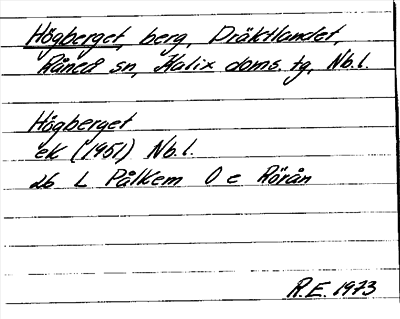 Högberget, berg, Dräktlandet,
Råneå sn, Kalix doms. tg, Nb. l.
Högberget
ek (1951) Nb. l.
26 L Pålkem 0 e Rörån
R.E. 1973